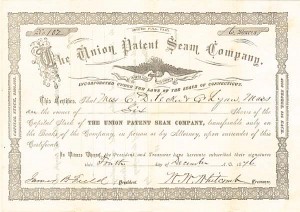 No. 182
6 Shares
The Union Patent Seam Company.
INCORPORATED UNDER THE LAWS OF THE STATE OF CONNECTICUT.
This Certifies That Lynn, Mass
is the owner of Six Shares of the
Capital Stock of THE UNION PATENT SEAM COMPANY, transferable only on
the Books of the Company, in person or by Attorney, upon surrender of this
Certificate.
In Witness Whereof the President and Treasurer have hereunto subscribed their signatures
this Fourth day of December 1876
James Field
W. W. Whitcomb
President
Treasurer